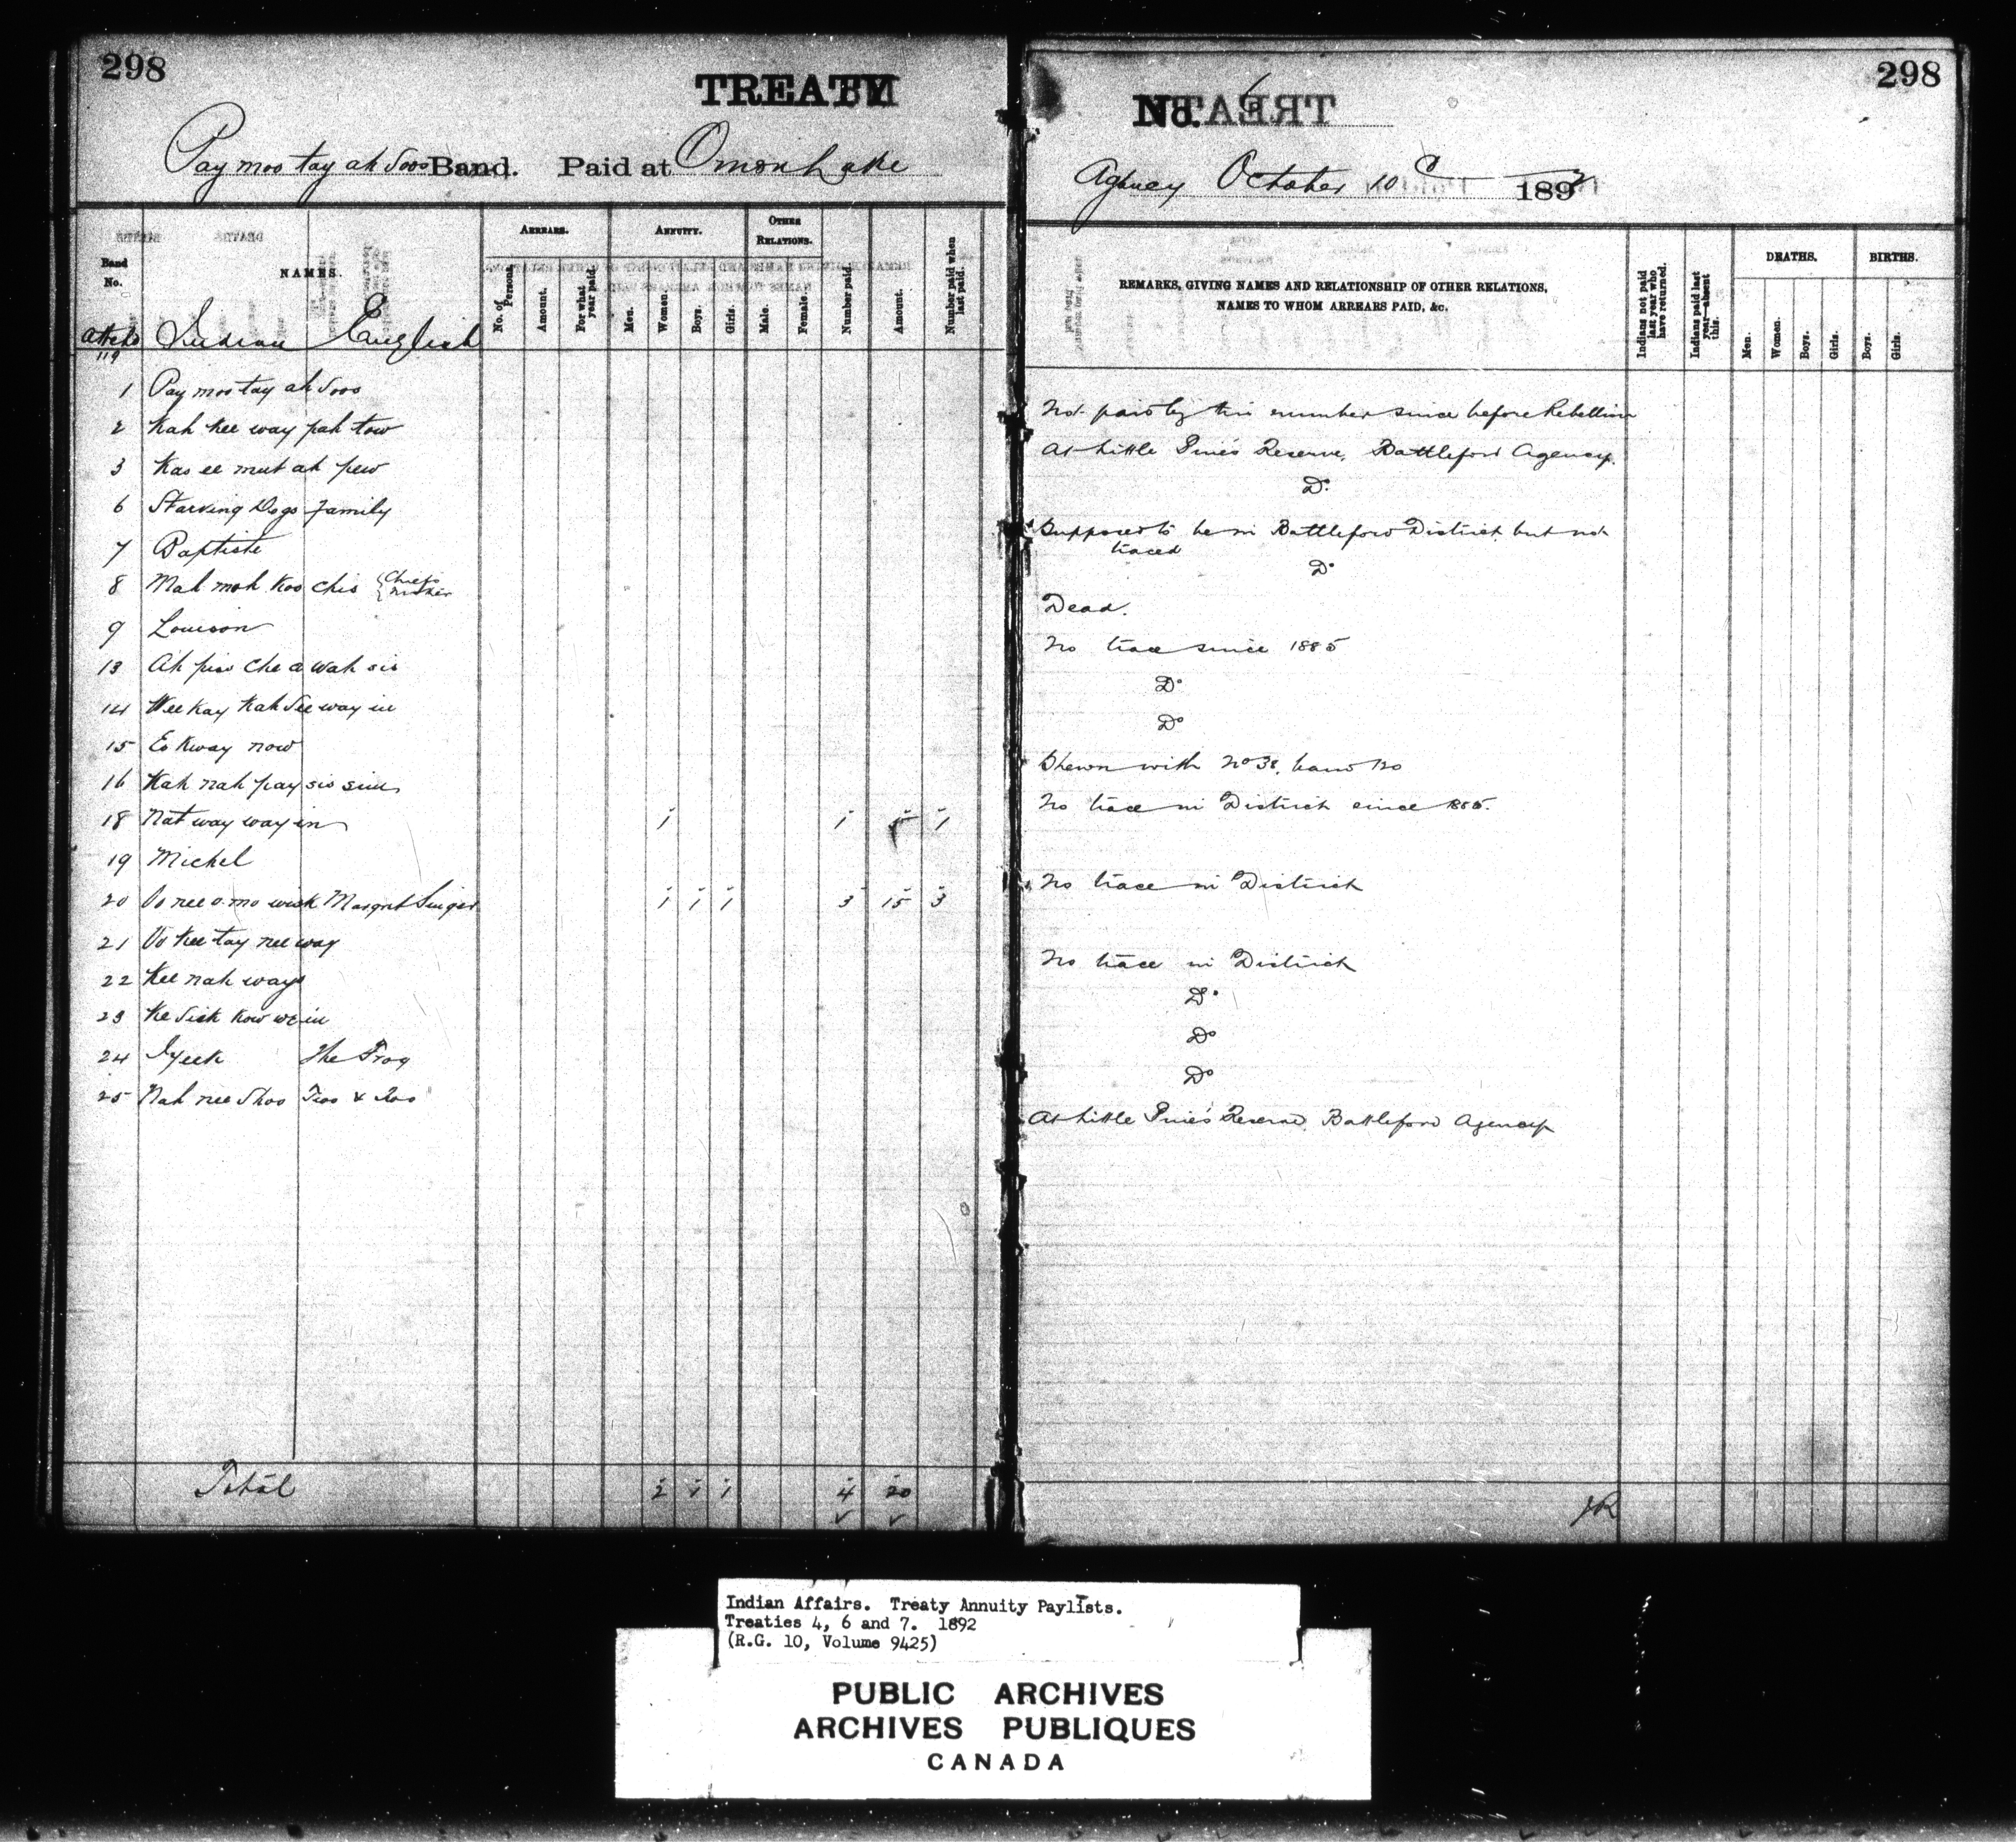 298
TREATY
Pay moo tay ah soos Band. Paid at Onion Lake
Band No.
NAMES.
ARREARS.
No. of Persons.
Amount.
For what year paid.
ANNUITY.
Men.
Women.
Boys.
Girls.
OTHER RELATIONS.
Male.
Female.
Number paid.
Amount.
Number paid when last paid.
119
Indian English
1 Pay moo tay ah soos
2 Kah kee way pah tow
3 Kas ee mut ah pew
6 Starving Dogs family
7 Baptiste
8 Mah mah koo chis { Chiefs mother
9 Louison
13 Ah piss che a wah sis
14 Wee kay kah see way in
15 Es kway now
16 Kah nah pay sis sim
18 Nat way way in 1 1 5 1
19 Michel
20 Oo nee o mo wisk Margret Singer 1 1 1 3 15 3
21 Oo kee tay nee way
22 Kee nah ways
23 Ke sick kow we in
24 Iyeek The Frog
25 Nah nee shoo Two & Two
Total 2 1 1 4 20
298
No. 6
Agency October 10 1892
REMARKS, GIVING NAMES AND RELATIONSHIP OF OTHER RELATIONS,
NAMES TO WHOM ARREARS PAID, &c.
Indians not paid last year who have returned.
Indians paid last year—absent this.
DEATHS.
Men.
Women.
Boys.
Girls.
BIRTHS.
Boys.
Girls.
Not paid by this number since before Rebellion
At Little Pine's Reserve, Battleford Agency.
Do
Supposed to be in Battleford District but not
traced
Do
Dead.
No trace since 1885
Do
Do
Shewn with No 38, band 120
No trace in District since 1885.
No trace in District
No trace in District
Do
Do
Do
At Little Pine's Reserve Battleford Agency
Indian Affairs. Treaty Annuity Paylists.
Treaties 4, 6 and 7. 1892
(R.G. 10, Volume 9425)
PUBLIC ARCHIVES
ARCHIVES PUBLIQUES
CANADA